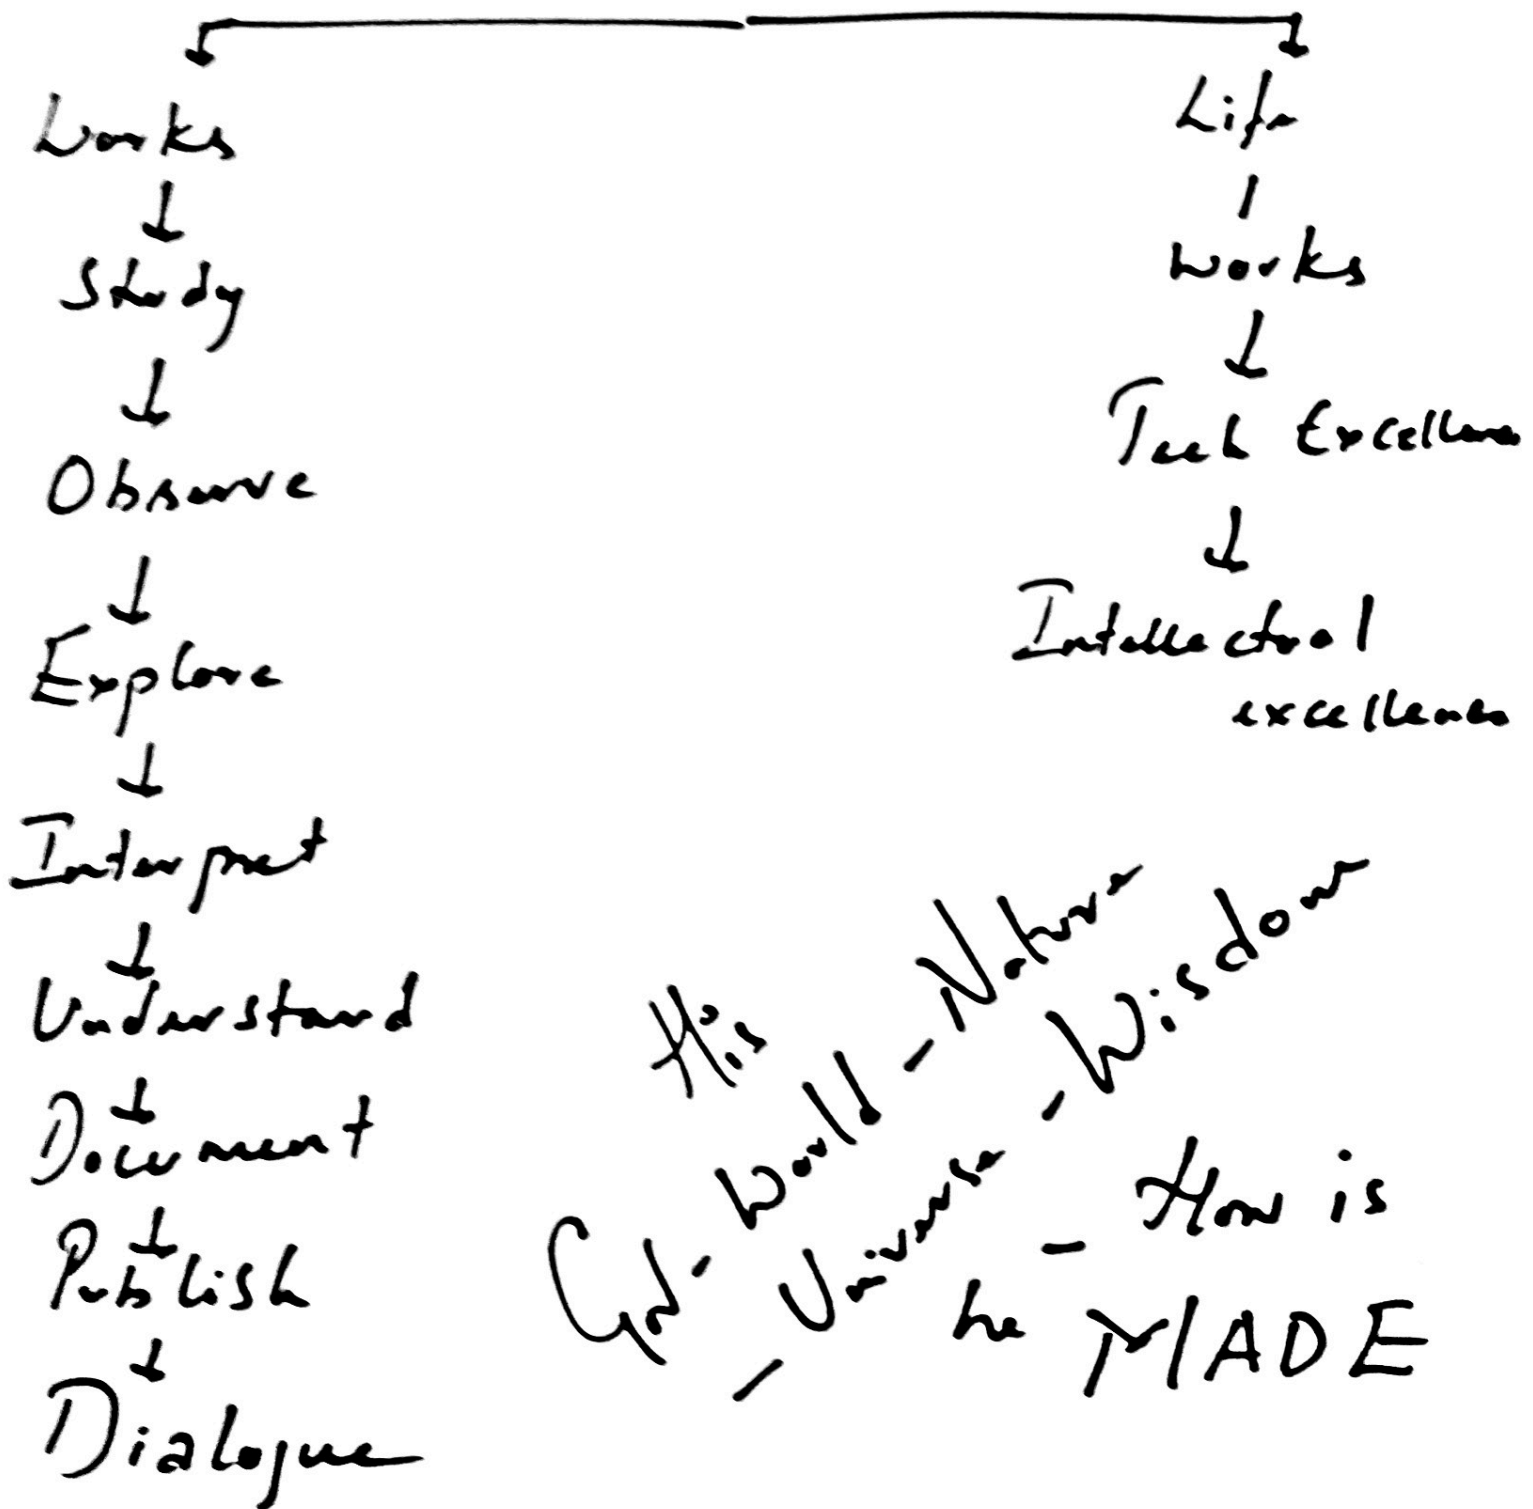 Works
Study
Observe
Explore
Interpret
Understand
Document
Publish
Dialogue
Life
Works
Tech Excellence
Intellectual
excellence
His
God - World - Nature
- Universe - Wisdom
- How is
he MADE